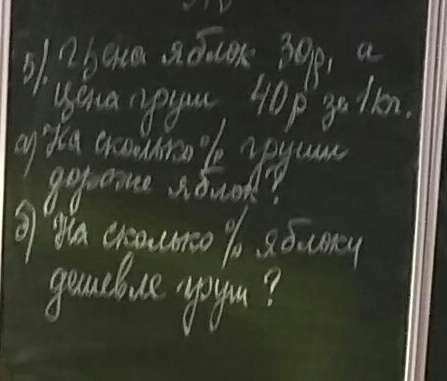 5). Цена яблок 30р, а
цена груш 40р за 1кг.
а) На сколько % груши
дороже яблок?
б) На сколько % яблоки
дешевле груш?